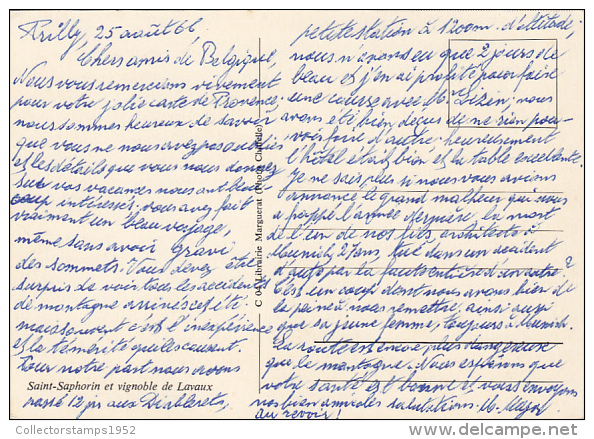 Prilly, 25 août 66
Chers amis de Belgique,
Nous vous remercions vivement
pour votre jolie carte de Provence,
nous sommes heureux de savoir
que vous ne nous avez pas oubliés
et les détails que vous nous donnez
sur vos vacances nous ont beau-
coup intéressés. Vous avez fait
vraiment un beau voyage,
même sans avoir gravi
des sommets. Vous devez être
surpris de voir tous les accidents
de montagne arrivés cet été
mais souvent c'est l'inexpérience
et la témérité qui les causent.
Pour notre part nous avons
Saint-Saphorin et vignoble de Lavaux
passé 12 jrs aux Diablerets,
C 04 Librairie Marguerat (Photo Chiffelle)
petite station à 1200m. d'altitude;
nous n'avons eu que 2 jours de
beau et j'en ai profité pour faire
une course avec M. nous
avons été bien déçus de ne rien pou-
voir faire d'autre; heureusement
l'hôtel était bien et la table excellente.
Je ne sais plus si nous vous avions
annoncé le grand malheur qui nous
a frappé l'année dernière, la mort
de l'un de nos fils, architecte à
Munich, 27 ans, tué dans un accident
d'auto par la faute d'un autre?
C'est un coup dont nous avons bien de
la peine à nous remettre, ainsi aussi
que sa jeune femme, toujours à Munich.
La route est encore plus dangereuse
que la montagne. Nous espérons que
votre santé est bonne et vous envoyons
nos bien amicales salutations.
au revoir!
Collectorstamps1952
delcampe.net